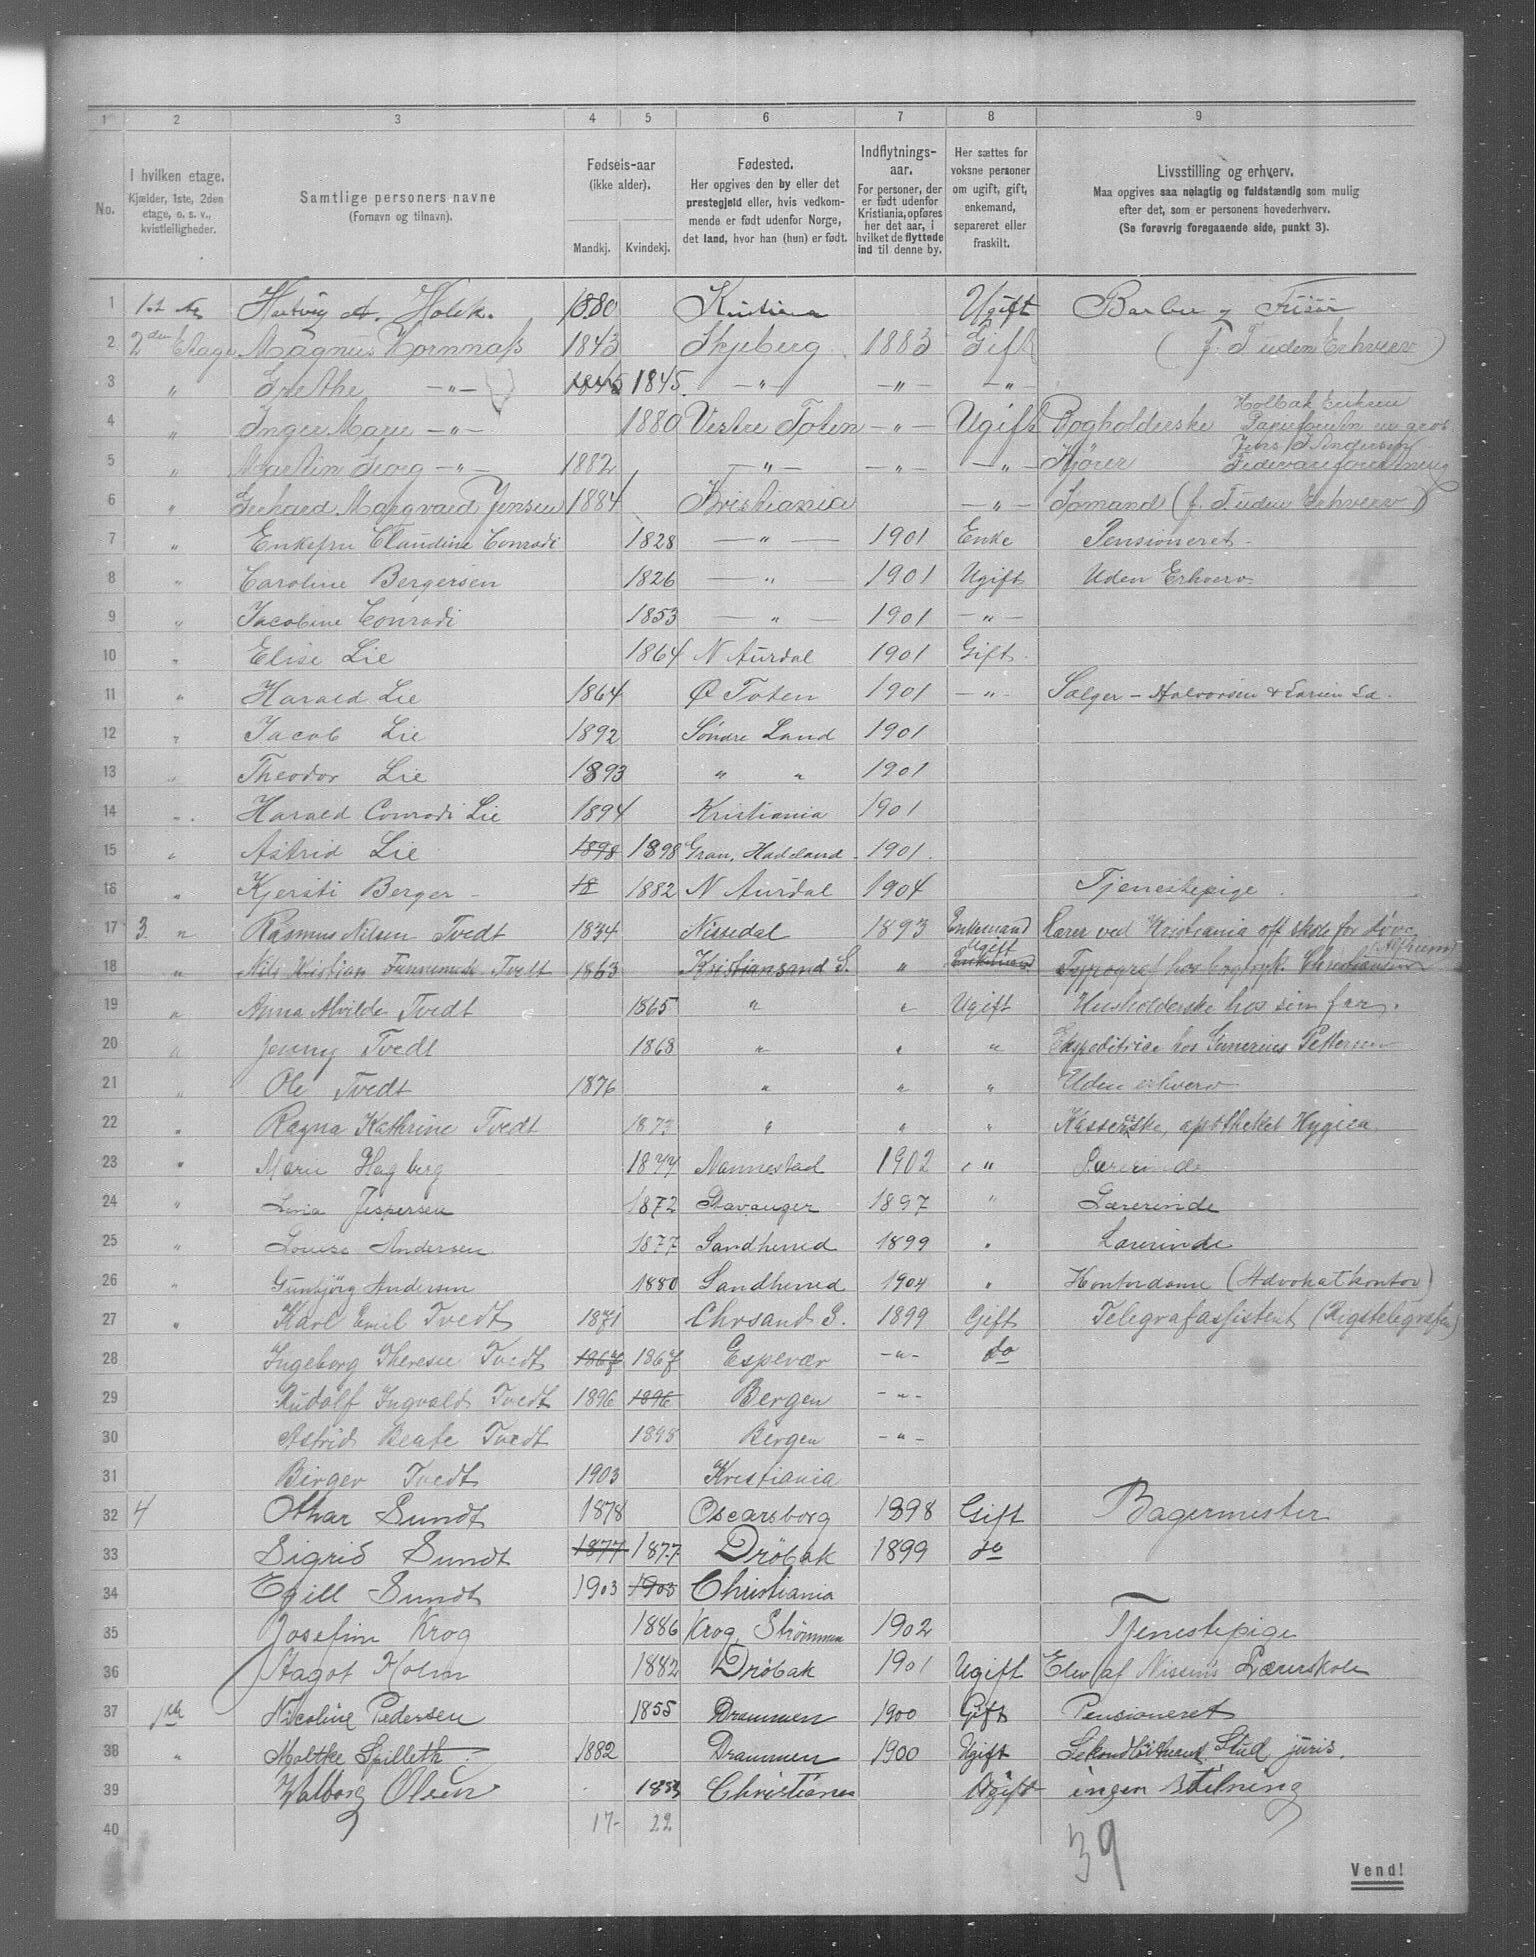 1 2 3 4 5 6 7 8 9
No.
I hvilken etage. Kjælder, 1ste, 2den etage, o. s. v., kvistleiligheder.
Samtlige personers navne (Fornavn og tilnavn).
Fødsels-aar (ikke alder). Mandkj. Kvindekj.
Fødested. Her opgives den by eller det prestegjeld eller, hvis vedkommende er født udenfor Norge, det land, hvor han (hun) er født.
Indflytnings-aar. For personer, der er født udenfor Kristiania, opføres her det aar, i hvilket de flyttede ind til denne by.
Her sættes for voksne personer om ugift, gift, enkemand, separeret eller fraskilt.
Livsstilling og erhverv. Maa opgives saa nøiagtig og fuldstændig som mulig efter det, som er personens hovederhverv. (Se forøvrig foregaaende side, punkt 3).
1 Hartvig A. Holck. 1880 Kristiania Ugift Barber og Frisør
2 2den Etage Magnus Hornnæss 1843 Skjeberg 1883 Gift (f. T uden Erhverv)
3 " Grethe —"— 1845 1845 —"— —"— —"—
4 " Inger Marie —"— 1880 Vestre Toten —"— Ugift Bogholderske Holbæk Eriksen Papirforretn en gros
5 " Martin Georg —"— 1882 —"— —"— —"— Kjører Jens J. Andersen Fedevareforretning
6 " Gerhard Marqvard Jensen 1884 Kristiania —"— Sømand (f. T uden Erhverv)
7 " Enkefru Claudine Conradi 1828 —"— 1901 Enke Pensioneret
8 " Caroline Bergersen 1826 —"— 1901 Ugift Uden Erhverv
9 " Jacobine Conradi 1853 —"— 1901 —"—
10 " Elise Lie 1864 N Aurdal 1901 Gift
11 " Harald Lie 1864 Ø Toten 1901 —"— Sælger - Halvorsen & Larsen Ld.
12 " Jacob Lie 1892 Søndre Land 1901
13 " Theodor Lie 1893 " " 1901
14 " Harald Conradi Lie 1894 Kristiania 1901
15 " Astrid Lie 1898 1898 Gran, Hadeland 1901
16 " Kjersti Berger 18 1882 N Aurdal 1904 Tjenestepige
17 3 " Rasmus Nilsen Tvedt 1834 Nissedal 1893 Enkemand Lærer ved Kristiania off skole for døve
18 " Nils Kristian Tvedt 1863 Kristiansand S. " Ugift Enkemand Typograf hos bogtryk. Christiansen
19 " Anna Alvilde Tvedt 1865 " " Ugift Husholderske hos sin far.
20 " Jenny Tvedt 1868 " " " Ekspeditrice hos Gunerius Pettersen
21 " Ole Tvedt 1876 " " " Uden erhverv
22 " Ragna Kathrine Tvedt 1873 " " " Kassererske, apotheket Hygiea
23 " Marie Hagberg 1877 Nannestad 1902 " Lærerinde
24 " Lina Jespersen 1872 Stavanger 1897 " Lærerinde
25 " Louise Andersen 1877 Sandherred 1899 " Lærerinde
26 " Gunbjörg Andersen 1880 Sandherred 1904 " Kontordame (Advokatkontor)
27 " Karl Emil Tvedt 1871 Chrsand S. 1899 Gift Telegrafassistent (Rigstelegrafen)
28 Ingeborg Therese Tvedt 1867 1867 Espevær —"— do
29 Rudolf Ingvald Tvedt 1896 1896 Bergen —"—
30 Astrid Beate Tvedt 1898 Bergen —"—
31 Birger Tvedt 1903 Kristiania
32 4 Othar Sundt 1878 Oscarsborg 1898 Gift Bagermester
33 Sigrid Sundt 1877 1877 Drøbak 1899 do
34 Egill Sundt 1903 1903 Christiania
35 Josefine Krog 1886 Krog, Strømmen 1902 Tjenestepige
36 Aagot Holm 1882 Drøbak 1901 Ugift Elev af Nissens Lærerskole
37 Nicoline Pedersen 1855 Drammen 1900 Gift Pensioneret
38 " Moltke Spilleth 1882 Drammen 1900 Ugift Sekondløitnant Stud juris.
39 Walborg Olsen Christiania Ugift ingen Stilning
40 17- 22
39
Vend!